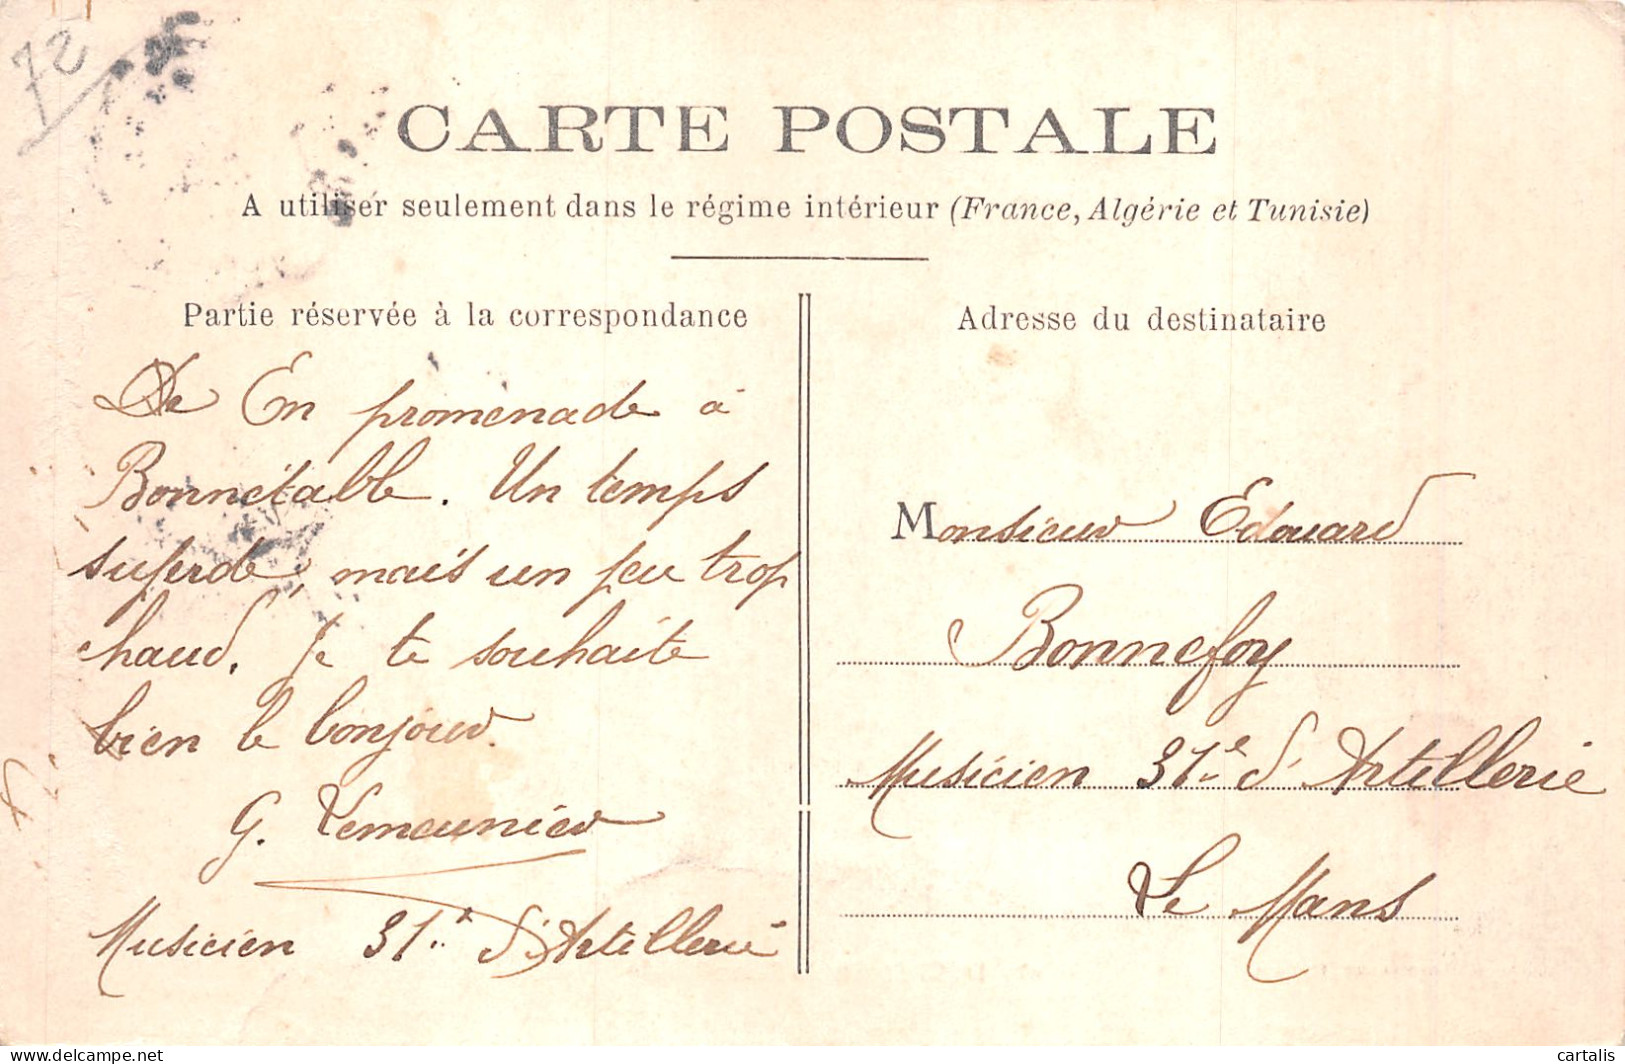 72
CARTE POSTALE
A utiliser seulement dans le régime intérieur (France, Algérie et Tunisie)
Partie réservée à la correspondance
En promenade à
Bonnétable. Un temps
superbe, mais un peu trop
chaud. Je te souhaite
bien le bonjour.
G. Lemeunier
Musicien 31e d'Artillerie
Adresse du destinataire
Monsieur Edouard
Bonnefoy
Musicien 31e d'Artillerie
Le Mans
cartalis
delcampe.net